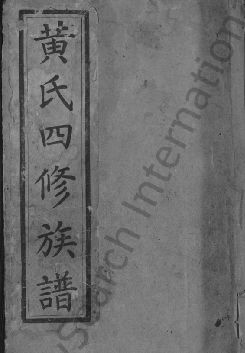 黄氏四修族譜
Search International